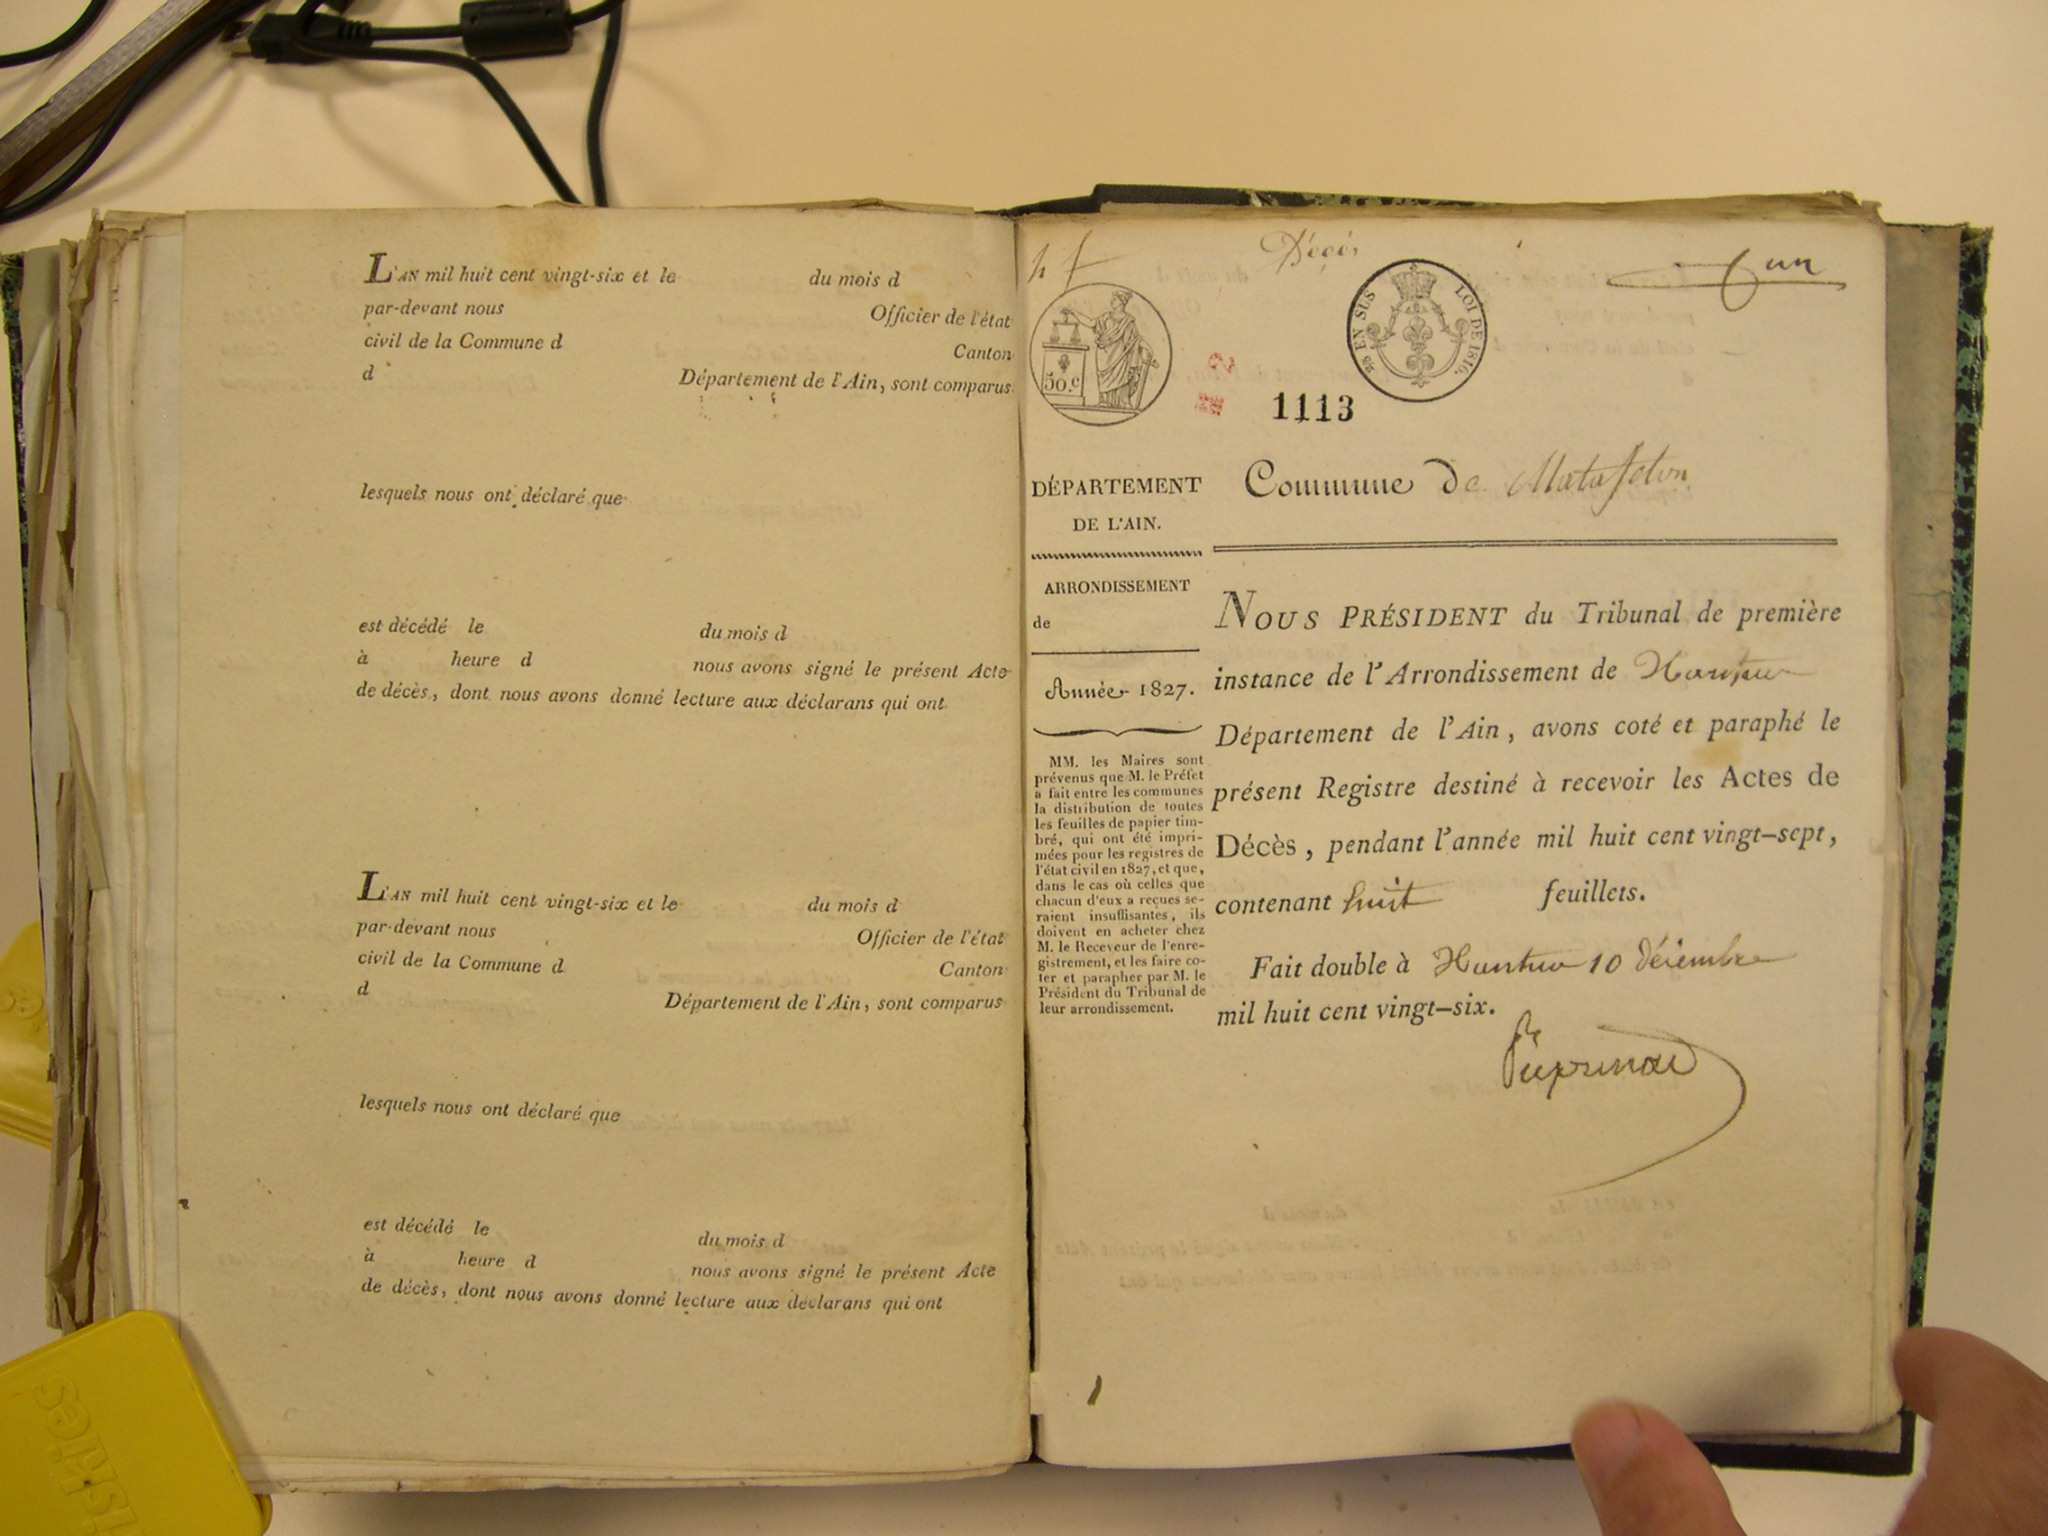 L'AN mil huit cent vingt-six et le du mois d
par-devant nous Officier de l'état
civil de la Commune d Canton
d Département de l'Ain, sont comparus
lesquels nous ont déclaré que
est décédé le du mois d
à heure d nous avons signé le présent Acte
de décès, dont nous avons donné lecture aux déclarans qui ont
L'AN mil huit cent vingt-six et le du mois d
par-devant nous Officier de l'état
civil de la Commune d Canton
d Département de l'Ain, sont comparus
lesquels nous ont déclaré que
est décédé le du mois d
à heure d nous avons signé le présent Acte
de décès, dont nous avons donné lecture aux déclarans qui ont
Décès
un
50.c
EN SUS LOI DE 1816.
1113
DÉPARTEMENT
DE L'AIN.
ARRONDISSEMENT
de
Année 1827.
MM. les Maires sont
prévenus que M. le Préfet
a fait entre les communes
la distribution de toutes
les feuilles de papier tim-
bré, qui ont été impri-
mées pour les registres de
l'état civil en 1827, et que,
dans le cas où celles que
chacun d'eux a reçues se-
raient insuffisantes, ils
doivent en acheter chez
M. le Receveur de l'enre-
gistrement, et les faire co-
ter et parapher par M. le
Président du Tribunal de
leur arrondissement.
Commune de Matafelon
NOUS PRÉSIDENT du Tribunal de première
instance de l'Arrondissement de Nantua
Département de l'Ain, avons coté et paraphé le
présent Registre destiné à recevoir les Actes de
Décès, pendant l'année mil huit cent vingt-sept,
contenant huit feuillets.
Fait double à Nantua 10 décembre
mil huit cent vingt-six.
1